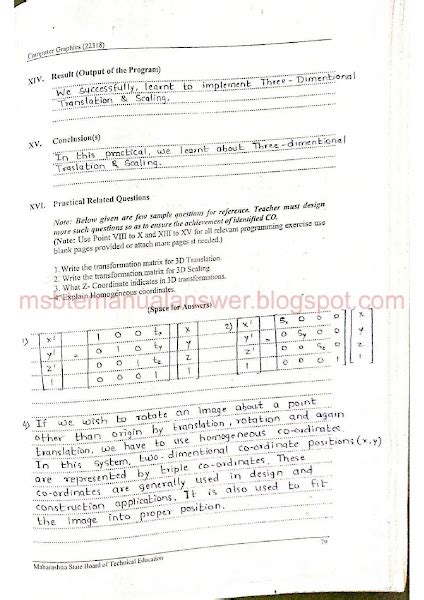 Computer Graphics (22318)
XIV. Result (Output of the Program)
We Successfully, learnt to implement Three-Dimentional
Translation & Scaling.
XV. Conclusion(s)
In this practical, we learnt about Three-dimentional
Traslation & Scaling.
XVI. Practical Related Questions
Note: Below given are few sample questions for reference. Teacher must design
more such questions so as to ensure the achievement of identified CO.
(Note: Use Point VIII to X and XIII to XV for all relevant programming exercise use
blank pages provided or attach more pages if needed.)
1. Write the transformation matrix for 3D Translation.
2. Write the transformation matrix for 3D Scaling
3. What Z- Coordinate indicates in 3D transformations.
4. Explain Homogeneous coordinates.
msbtemanualanswer.blogspot.com
(Space for Answers)
1) x' 1 0 0 tx 2) x' Sx 0 0 0 x
y' = 0 1 0 ty y' = 0 Sy 0 0 y
z' 0 0 1 tz z' 0 0 Sz 0 z
1 0 0 0 1 1 0 0 0 1 1
4) If we wish to rotate an image about a point
other than origin by translation, rotation and again
translation, we have to use homogeneous co-ordinates.
In this system, two-dimentional co-ordinate positions (x,y)
are represented by triple co-ordinates. These
co-ordinates are generally used in design and
construction applications. It is also used to fit
the image into proper position.
79
Maharashtra State Board of Technical Education